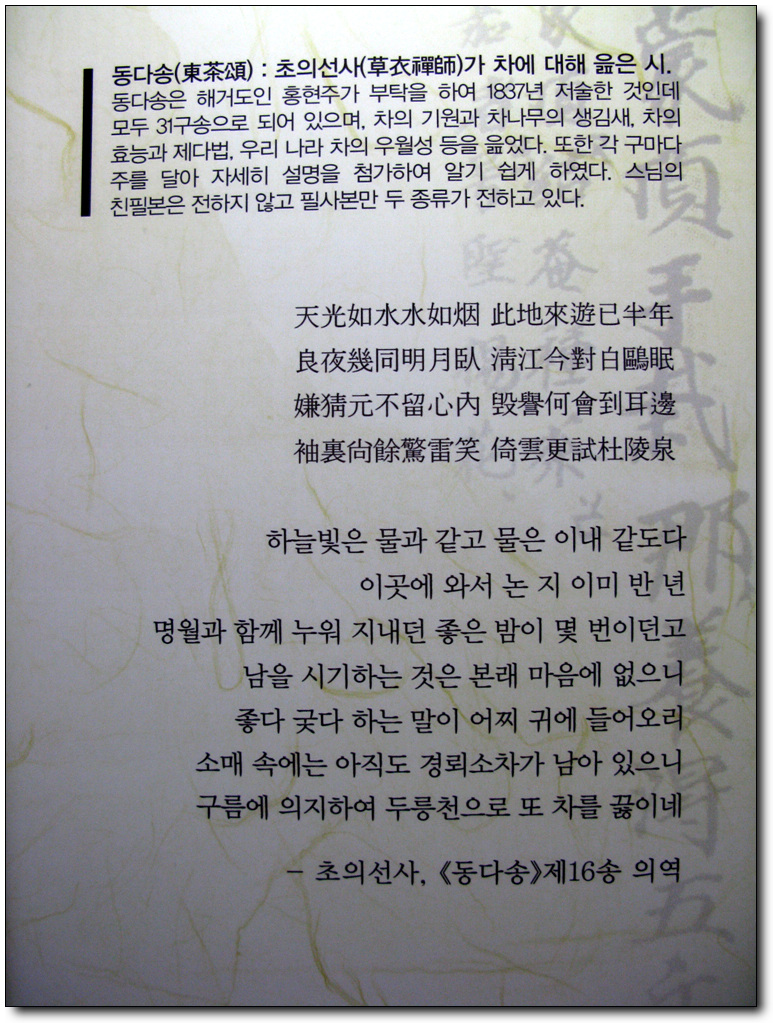 동다송(東茶頌) : 초의선사(草衣禪師)가 차에 대해 읊은 시.
동다송은 해거도인 홍현주가 부탁을 하여 1837년 저술한 것인데
모두 31구송으로 되어 있으며, 차의 기원과 차나무의 생김새, 차의
효능과 제다법, 우리 나라 차의 우월성 등을 읊었다. 또한 각 구마다
주를 달아 자세히 설명을 첨가하여 알기 쉽게 하였다. 스님의
친필본은 전하지 않고 필사본만 두 종류가 전하고 있다.
天光如水水如烟 此地來遊已半年
良夜幾同明月臥 淸江今對白鷗眠
嫌猜元不留心內 毁譽何會到耳邊
袖裏尙餘驚雷笑 倚雲更試杜陵泉
하늘빛은 물과 같고 물은 이내 같도다
이곳에 와서 논 지 이미 반 년
명월과 함께 누워 지내던 좋은 밤이 몇 번이던고
남을 시기하는 것은 본래 마음에 없으니
좋다 궂다 하는 말이 어찌 귀에 들어오리
소매 속에는 아직도 경뢰소차가 남아 있으니
구름에 의지하여 두릉천으로 또 차를 끓이네
- 초의선사, 《동다송》제16송 의역